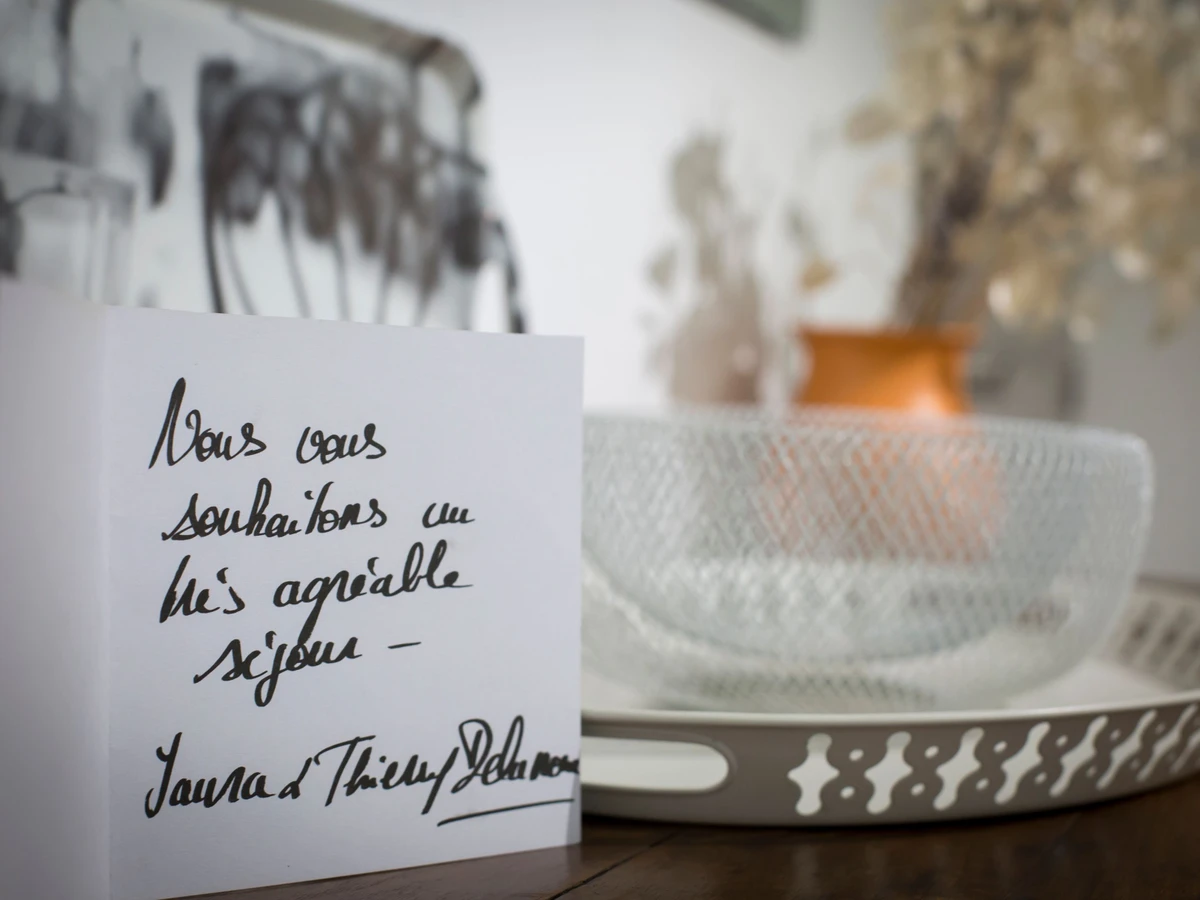 Nous vous
souhaitons un
très agréable
séjour –
Laura & Thierry